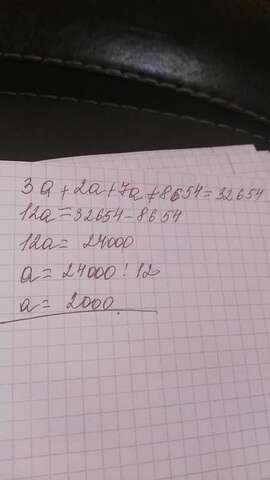 3a + 2a + 7a + 8654 = 32654
12a = 32654 - 8654
12a = 24000
a = 24000 : 12
a = 2000.